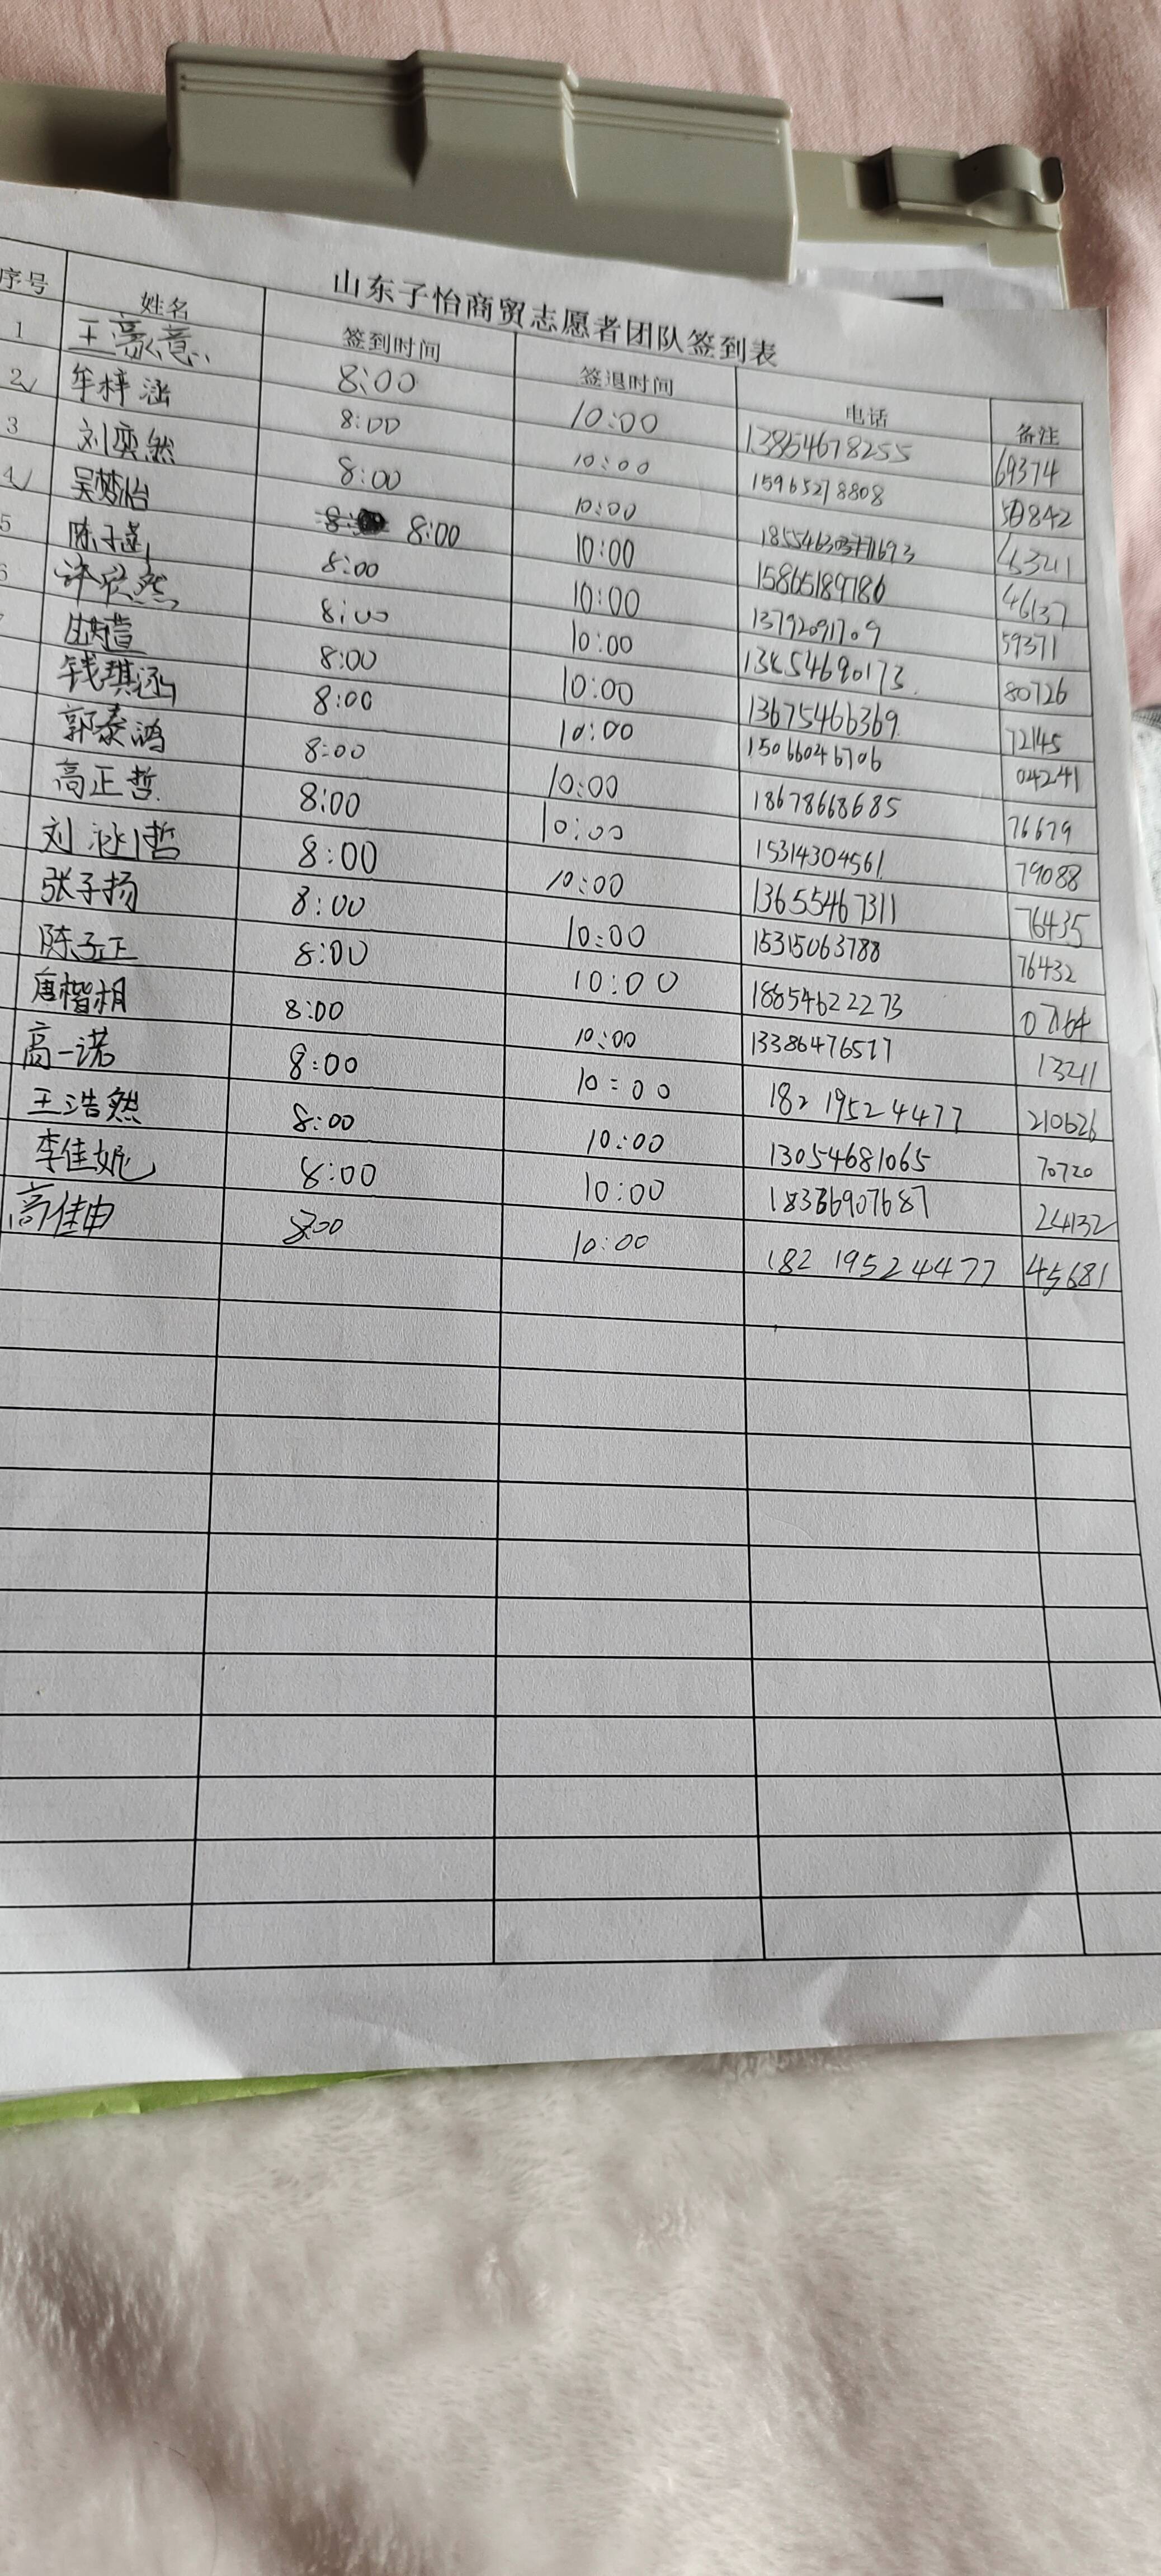 山东子怡商贸志愿者团队签到表
序号 姓名 签到时间 签退时间 电话 备注
1 王 8:00 10:00 13854678255 69374
2√ 牟梓涵 8:00 10:00 15965278808 842
3 刘奕然 8:00 10:00 185546 1693
4√ 吴梦怡 8:00 10:00 15865189786 46137
5 陈子 8:00 10:00 13792091709 59371
6 许欣然 8:00 10:00 80726
8:00 10:00 13675466369 72145
钱琪涵 8:00 10:00 15066046706 04241
郭泰鸿 8:00 10:00 18678668685 76679
高正哲 8:00 10:00 15314304561 79088
刘 哲 8:00 10:00 13655467311 76435
张子扬 8:00 10:00 15315063788 76432
陈子正 8:00 10:00 18854622273
唐楷桐 8:00 10:00 13386476577 13211
高一诺 8:00 10:00 182 1952 4477 210626
王浩然 8:00 10:00 13054681065 70720
李佳妮 8:00 10:00 24132
高佳由 8:00 10:00 182 1952 4477 45681